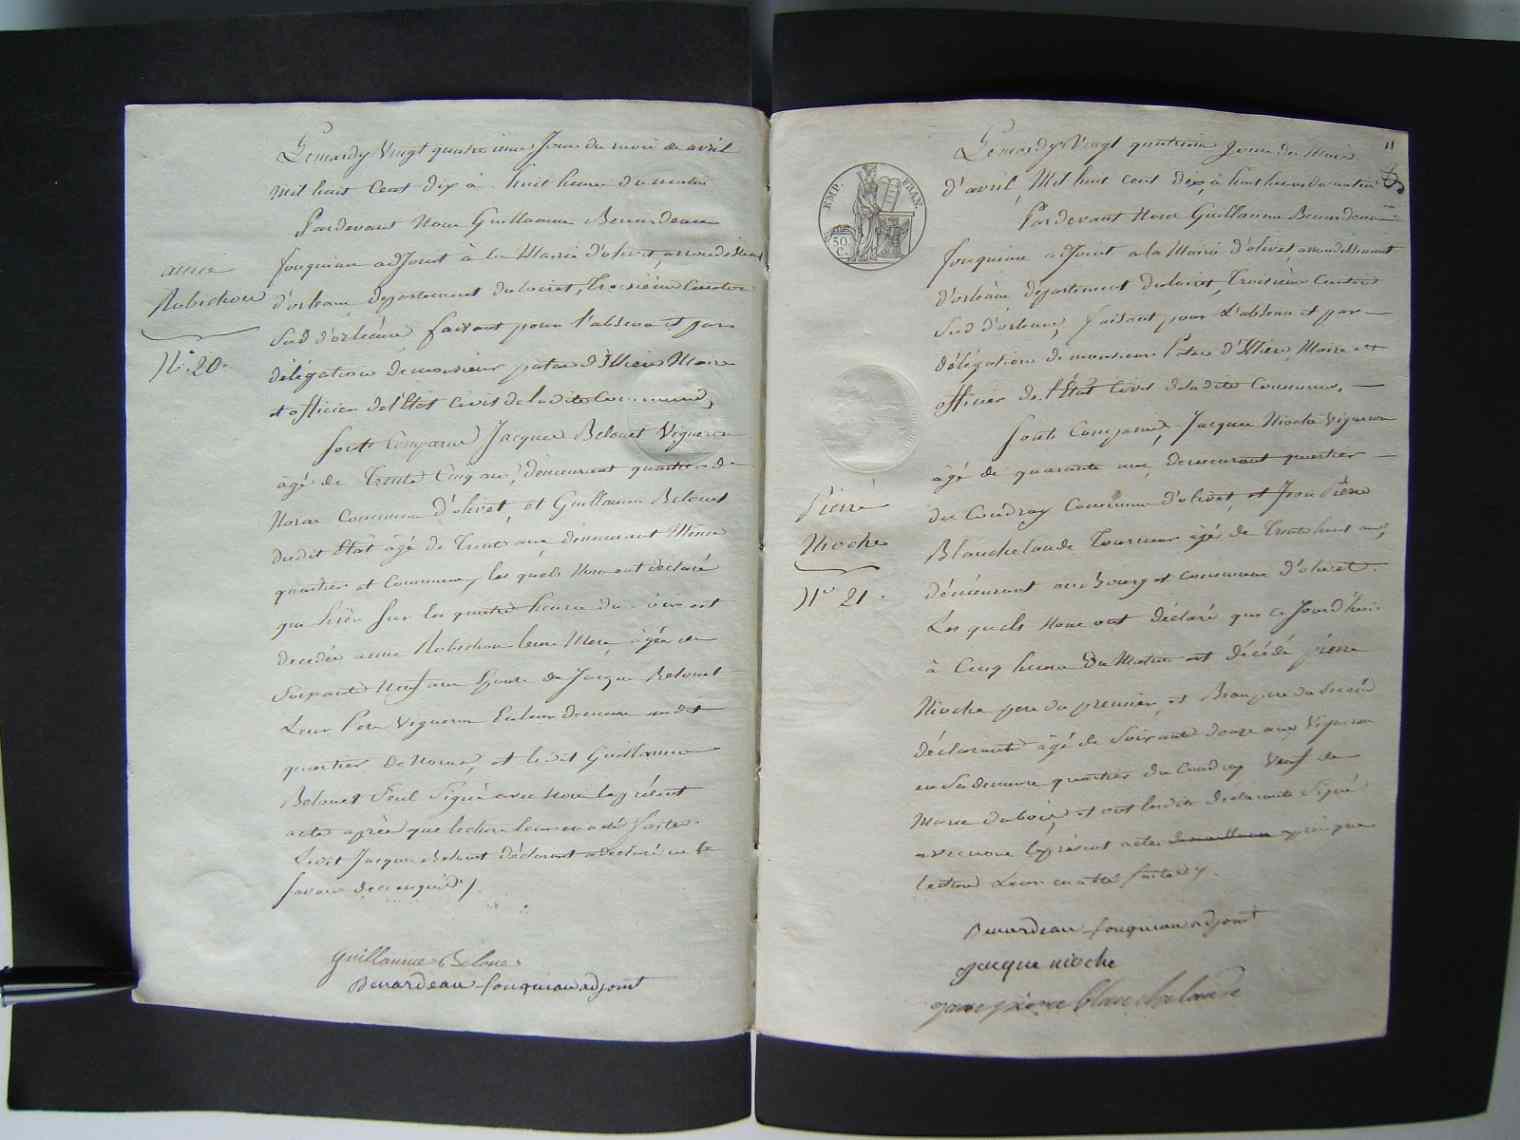 Le mardy Vingt quatrieme Jour du mois de avril
mil huit Cent dix à huit heures du matin
Pardevant Nous Guillaume Beuardeau
fouqueau adJoint à la Mairie d'olivet, arrondissement
d'orleans departement du loiret, troisième Canton
Sud d'orléans, faisant pour l'absence et par
délégation de monsieur patas d'Illiers Maire
et officier de l'Etat Civil de ladite Commune,
Sont Comparus Jacques Belouet Vigneron
âgé de Trente Cinq ans, demeurant quartier de
Noras Commune d'olivet, et Guillaume Belouet
dudit Etat âgé de Trente ans demeurant Même
quartier et Commune, les quels Nous ont déclaré
que hier Sur les quatre heures du soir est
decedée anne Robichon leur Mere, âgée de
Soixante Neuf ans Epouse de Jacques Belouet
Leur Pere Vigneron En leur demeure susdit
quartier de Noras, et ledit Guillaume
Belouet Seul Signé avec Nous le présent
acte après que lecture leur en a été faite.
Ledit Jacques Belouet déclarant a déclaré ne le
savoir de ce enquis
anne
Robichon
N.° 20.
guillaume Beloue
Beuardeau fouqueau adjoint
11
EMP. FRAN.
50 C.
Le mardy Vingt quatrieme Jour du Mois
d'avril Mil huit cent dix, à huit heures du matin
Pardevant Nous Guillaume Beuardeau
fouqueau adJoint a la Mairie d'olivet, arrondissement
d'orléans departement du loiret, Troisième Canton
Sud d'orléans, faisant pour L'absence et par
délégation de monsieur Patas d'Illiers Maire et
officier de l'État Civil de ladite Commune,
Sont Comparus, Jacques Nioche Vigneron
âgé de quarante ans, demeurant quartier
du Coudray Commune d'olivet, et Jean Pierre
Blanchelande Tourneur âgé de Trente huit ans,
demeurant au bourg et commune d'olivet.
Les quels Nous ont déclaré que ce Jourd'hui
à Cinq heures du Matin est décédé pierre
Nioche pere du premier, et Beaupere du Second
déclarants âgé de Soixante douze ans Vigneron
en Sa demeure quartier du Coudray Veuf de
Marie dubois, et ont lesdits déclarants Signé
avec nous le présent acte après que
lecture Leur en a été faite
Pierre
Nioche
N.° 21.
Beuardeau fouqueau adjoint
jacque nioche
jean pierre blanchelande